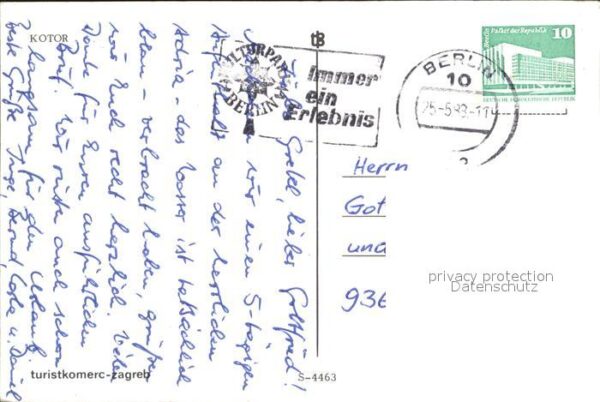 KOTOR
Liebe Gretel, lieber Gottfried!
wir einen 5-tägigen
Aufenthalt an der herrlichen
Adria - das Wasser ist tatsächlich
blau - verbracht haben, grüßen
wir Euch recht herzlich. Vielen
Dank für Euren ausführlichen
Brief. Wir rüsten auch schon
langsam für den Urlaub.
Beste Grüße Inge, Bernd, u. Daniel
turistkomerc-zagreb
S-4463
KULTURPARK
BERLIN
Immer
ein
Erlebnis
BERLIN
10
25-5.83-11
Berlin, Palast der Republik
10
DEUTSCHE DEMOKRATISCHE REPUBLIK
Herrn
Got
und
936
privacy protection
Datenschutz